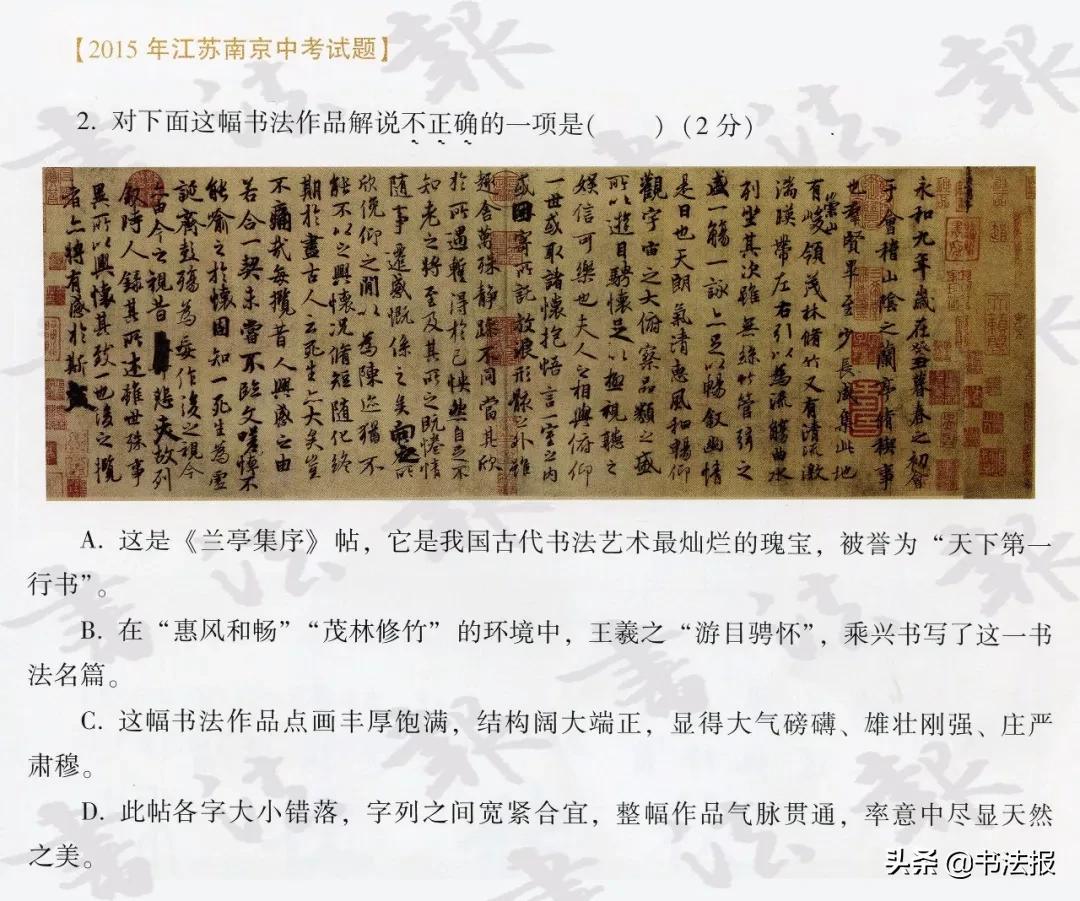 【2015 年江苏南京中考试题】
2. 对下面这幅书法作品解说不正确的一项是(　　)(2 分)
永和九年歲在癸丑暮春之初會
于會稽山陰之蘭亭脩稧事
也羣賢畢至少長咸集此地
有崇山峻領茂林脩竹又有清流激
湍暎帶左右引以為流觴曲水
列坐其次雖無絲竹管弦之
盛一觴一詠亦足以暢敘幽情
是日也天朗氣清惠風和暢仰
觀宇宙之大俯察品類之盛
所以遊目騁懷足以極視聽之
娛信可樂也夫人之相與俯仰
一世或取諸懷抱悟言一室之內
或因寄所託放浪形骸之外雖
趣舍萬殊靜躁不同當其欣
於所遇暫得於己怏然自足不
知老之將至及其所之既惓情
隨事遷感慨係之矣向之所
欣俛仰之閒以為陳迹猶不
能不以之興懷況脩短隨化終
期於盡古人云死生亦大矣豈
不痛哉每攬昔人興感之由
若合一契未嘗不臨文嗟悼不
能喻之於懷固知一死生為虛
誕齊彭殤為妄作後之視今
亦由今之視昔悲夫故列
敘時人錄其所述雖世殊事
異所以興懷其致一也後之攬
者亦將有感於斯文
A. 这是《兰亭集序》帖，它是我国古代书法艺术最灿烂的瑰宝，被誉为“天下第一
行书”。
B. 在“惠风和畅”“茂林修竹”的环境中，王羲之“游目骋怀”，乘兴书写了这一书
法名篇。
C. 这幅书法作品点画丰厚饱满，结构阔大端正，显得大气磅礴、雄壮刚强、庄严
肃穆。
D. 此帖各字大小错落，字列之间宽紧合宜，整幅作品气脉贯通，率意中尽显天然
之美。
头条 @书法报
書法報